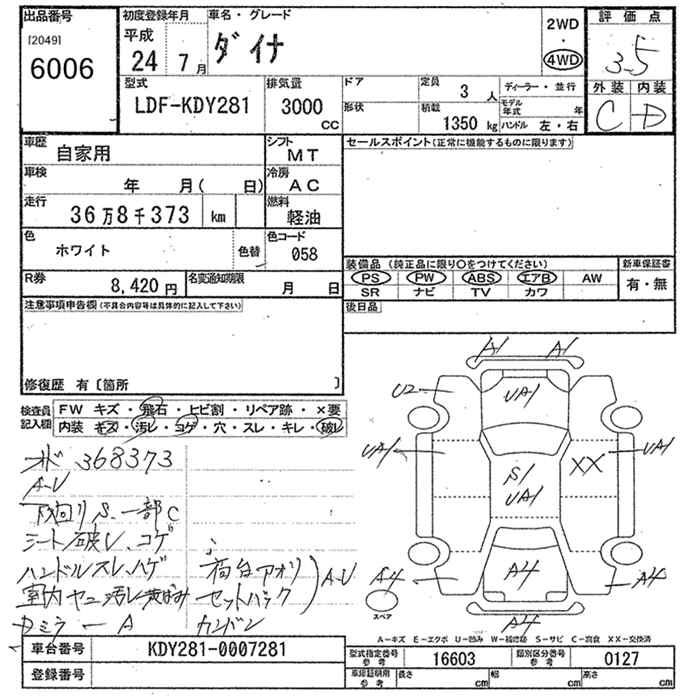 出品番号
[2049]
6006
初度登録年月
平成
24 7 月
車名・グレード
ダイナ
2WD
・
4WD
評価点
3.5
外装 内装
C D
型式
LDF-KDY281
排気量
3000
CC
ドア
形状
定員
3 人
積載
1350 kg
ディーラー・並行
モデル年式 年
ハンドル 左・右
車歴
自家用
シフト
MT
車検
年 月( 日)
冷房
AC
走行
36万8千373 km
燃料
軽油
色
ホワイト
色替
色コード
058
R券
8,420 円
名変通知期限
月 日
セールスポイント(正常に機能するものに限ります)
装備品 (純正品に限り○をつけてください)
PS PW ABS エアB AW
SR ナビ TV カワ
新車保証書
有・無
後日品
注意事項申告欄(不具合内容等は具体的に記入して下さい)
修復歴 有〔箇所 〕
検査員記入欄
FW キズ・飛石・ヒビ割・リペア跡・×要
内装 キズ・汚レ・コゲ・穴・スレ・キレ・破レ
368373
A-U
下回りS.一部C
シート破レ.コゲ
ハンドルスレ.ハゲ
室内ヤニ汚レ
荷台アオリ
セットバック
A-U
A
A1 A1
U2 UA1
UA1 S1 XX UA1
UA1
A4 A4 A4
A4
スペア
A-キズ E-エクボ U-凹み W-補修跡 S-サビ C-腐食 XX-交換済
車台番号
KDY281-0007281
登録番号
型式指定番号 参考
16603
類別区分番号 参考
0127
車庫証明用 参考
長さ cm
幅 cm
高さ cm